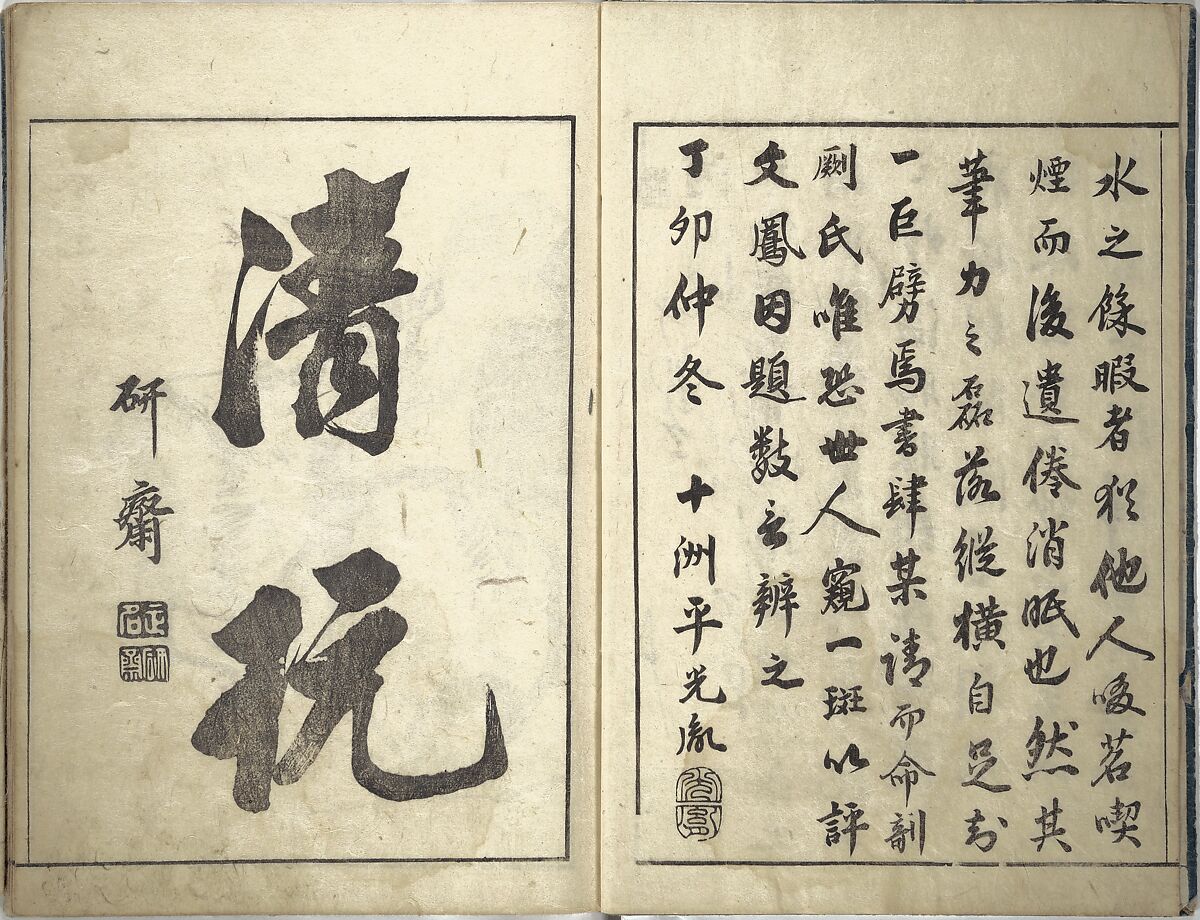 水之餘暇者猶他人啜茗喫
煙而後遺倦消眠也然其
筆力之磊落縱橫自足
一巨劈焉書肆某請而命剞
劂氏唯恐世人窺一斑以評
文鳳因題數言辨之
丁卯仲冬 十洲平光胤
清玩
研齋